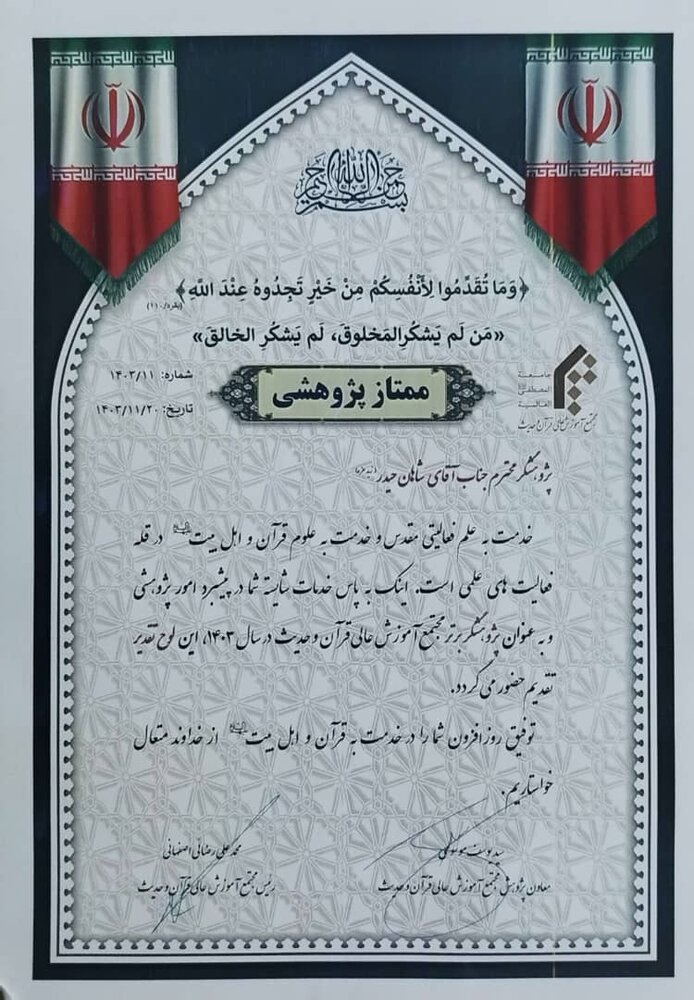 بسم الله الرحمن الرحیم
﴿وَمَا تُقَدِّمُوا لِأَنْفُسِكُمْ مِنْ خَيْرٍ تَجِدُوهُ عِنْدَ اللَّهِ﴾ (بقره/۱۱۰)
«مَن لَم يَشكُرِ المَخلوقَ، لَم يَشكُرِ الخالقَ»
جامعة
المصطفی
العالمیة
مجتمع آموزش عالی قرآن و حدیث
شماره: ۱۴۰۳/۱۱
تاریخ: ۱۴۰۳/۱۱/۲۰
ممتاز پژوهشی
پژوهشگر محترم جناب آقای شاهان حیدر
خدمت به علم فعالیتی مقدس و خدمت به علوم قرآن و اهل بیت در قله
فعالیت های علمی است. اینک به پاس خدمات شایسته شما در پیشبرد امور پژوهشی
و به عنوان پژوهشگر برتر مجتمع آموزش عالی قرآن و حدیث در سال ۱۴۰۳، این لوح تقدیر
تقدیم حضور می گردد.
توفیق روز افزون شما را در خدمت به قرآن و اهل بیت از خداوند متعال
خواستاریم.
سید یوسف موسوی
معاون پژوهش مجتمع آموزش عالی قرآن و حدیث
محمد علی رضائی اصفهانی
رئیس مجتمع آموزش عالی قرآن و حدیث